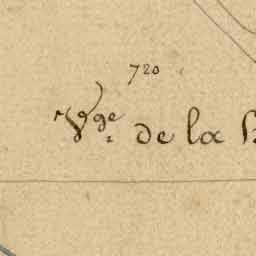 720
Vge de la